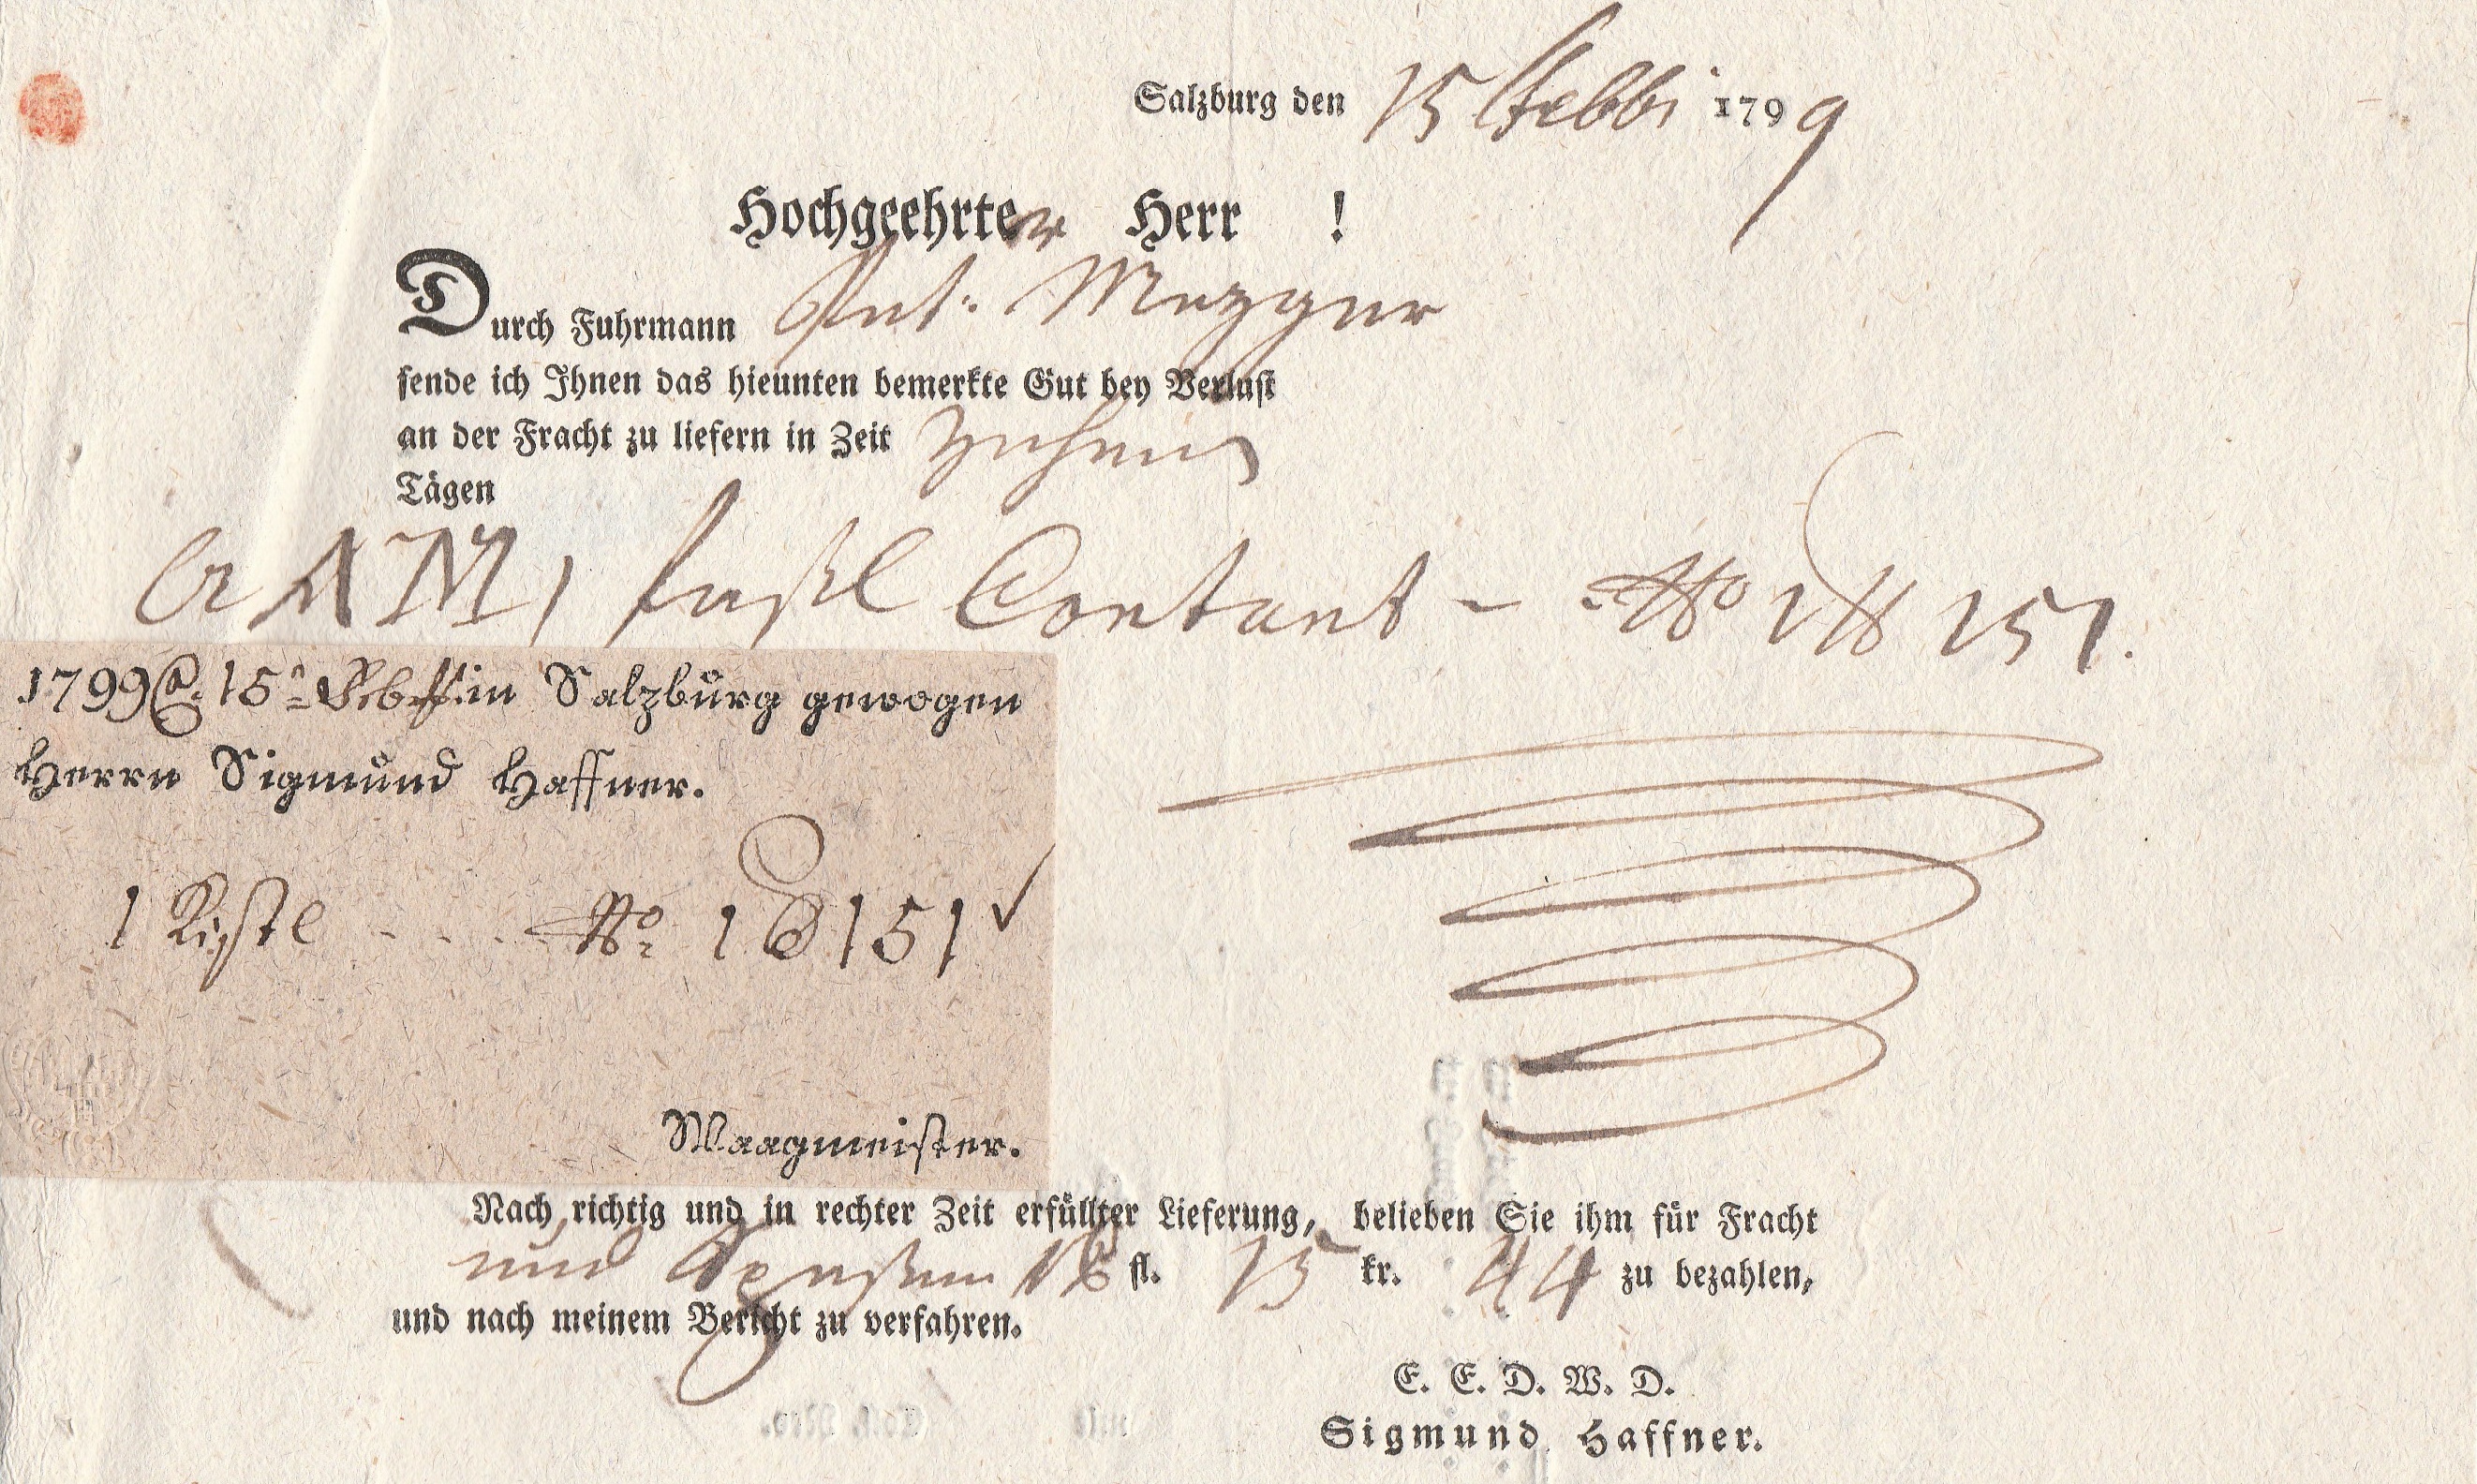 Salzburg den 15 Febbr 1799
Hochgeehrter Herr !
Durch Fuhrmann Ant: Mezger
sende ich Ihnen das hieunten bemerkte Gut bey Verlust
an der Fracht zu liefern in Zeit
Tägen
AM 1 faßl Contant - No 1 ℔ 151.
1799 15 in Salzburg gewogen
Herrn Sigmund Haffner.
1 Kistl . . . No. 1 ℔ 151
Waagmeister.
Nach richtig und in rechter Zeit erfüllter Lieferung, belieben Sie ihm für Fracht
und Spesen fl. 15 kr. 44 zu bezahlen,
und nach meinem Bericht zu verfahren.
E. E. D. W. D.
Sigmund Haffner.